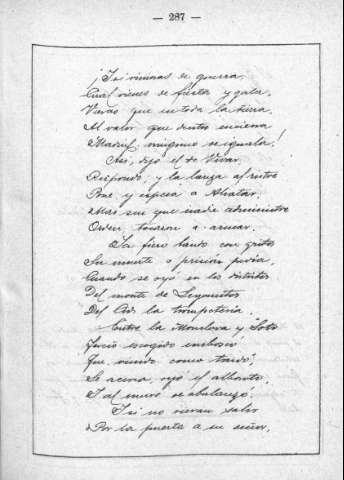 — 287 —
¡Y si vinieras de guerra,
Cual vienes de fiesta y gala,
Vieras que en toda la tierra,
Al valor que dentro encierra
Madrid, ninguno se iguala!
Así, dijo el de Vivar,
Respondo, y la lanza al ristre
Pone, y espera a Aliatar,
Mas sin que nadie administre
Orden, tocaron a armar.
Ya fiero bando con gritos
Su muerte o prisión pedía,
Cuando se oyó en los distritos
Del monte de Leganitos
Del Cid la trompetería.
Entre la Moncloa y Soto
Tercio escogido emboscó
Que, viendo como tardó,
Se acerca, oyó el alboroto,
Y al muro se abalanzó.
Y si no vieran salir
Por la puerta a su señor,